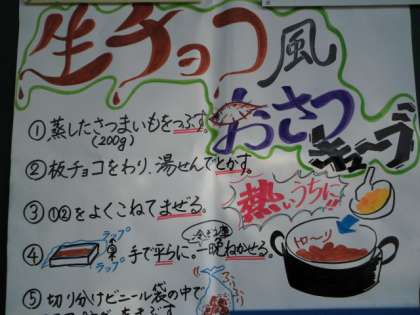 生チョコ風
おさつ
キューブ
①蒸したさつまいもをつぶす。
(200g)
②板チョコをわり、湯せんでとかす。
③①②をよくこねてまぜる。
熱いうちに!!
トローリ
ラップ
④手で平らに。一晩ねかせる。
ラップ
⑤切り分けビニール袋の中で